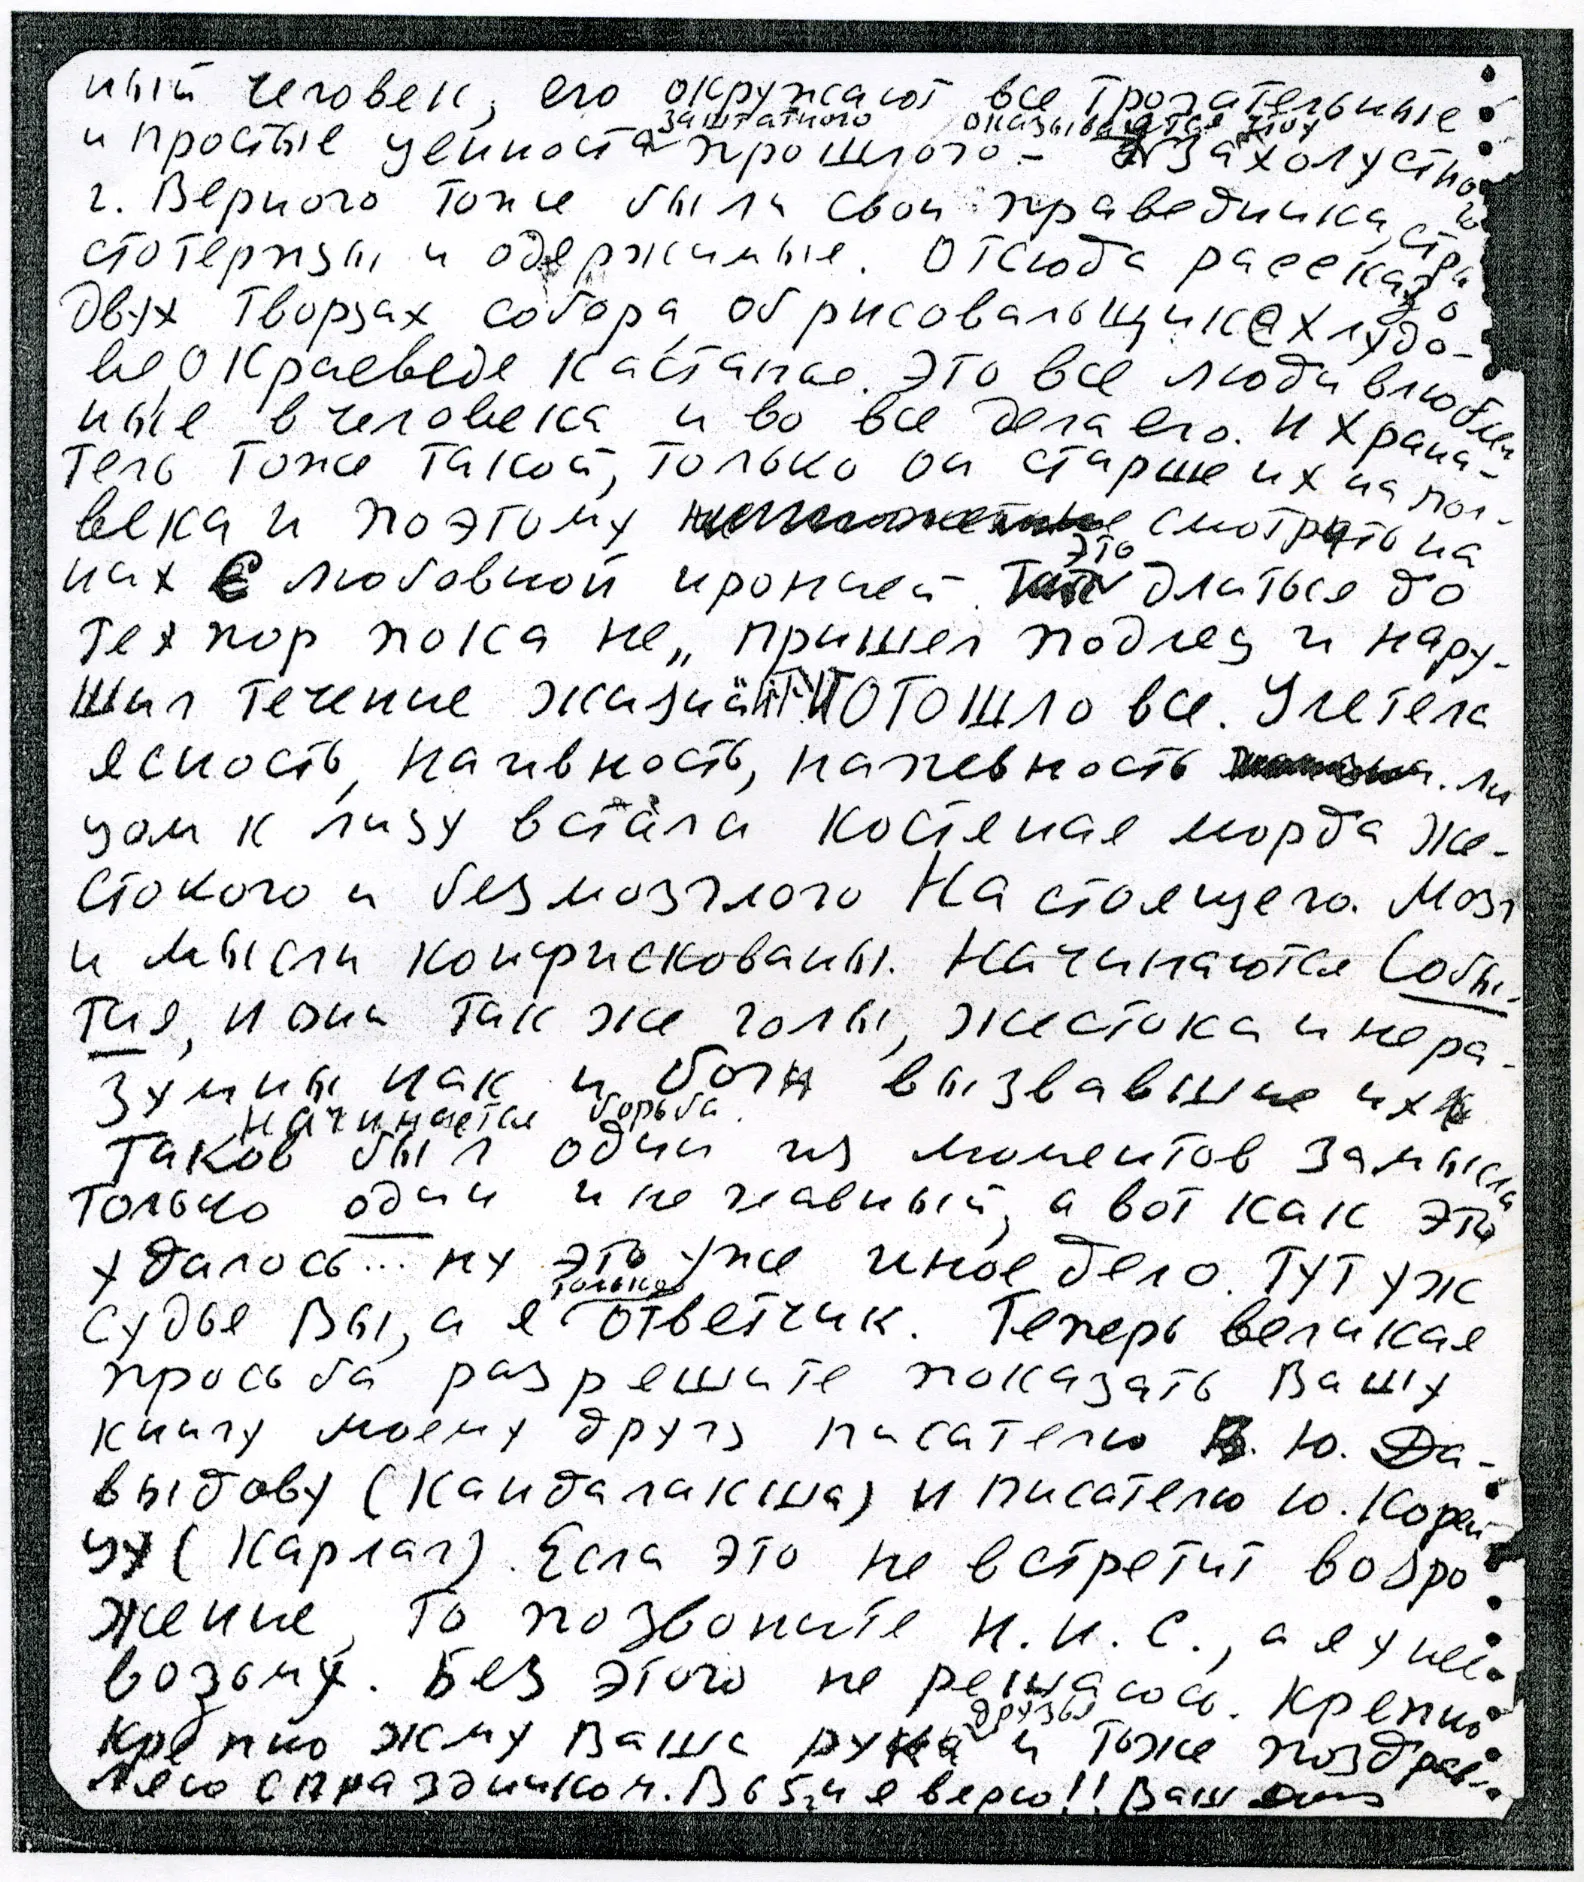 ный человек, его окружают все трогательные
заштатного оказывается этого
и простые ценности прошлого - захолустно
г. Верного тоже были свои праведники, стра
стотерпцы и одержимые. Отсюда рассказ о
двух творцах собора, о рисовальщике Хлудо-
ве, о краеведе Кастанье. Это все люди влюблен
ные в человека и во все дела его. И Храни-
тель тоже такой, только он старше их на пол-
века и поэтому смотрить на
это
них с любовной иронией. длиться до
тех пор пока не „пришел подлец и нару-
шил течение жизни" ТУТ ОТОШЛО все. Улетела
ясность, наивность, напевность . Ли
цом к лицу встала костяная морда же-
стокого и безмозглого Настоящего. Мозг
и мысли конфискованы. Начинаются Собы-
тия, и они так же голы, жестоки и нера-
зумны как и боги вызвавшие их
начинается борьба.
Таков был один из моментов замысла
только один и не главный, а вот как это
удалось... ну это уже иное дело. Тут уж
только
судья Вы, а я ответчик. Теперь великая
просьба разрешите показать Вашу
книгу моему другу писателю Ю. Да-
выдову (Кандалакша) и писателю Ю. Корей
цу (Карлаг). Если это не встретит возро
жение, то позвоните Н. И. С., а я у нее
возьму. Без этого не решаюсь. Крепко
друзья
крепко жму Ваша рука и тоже поздрав-
ляю с праздником. В 65, и я верю!! Ваш